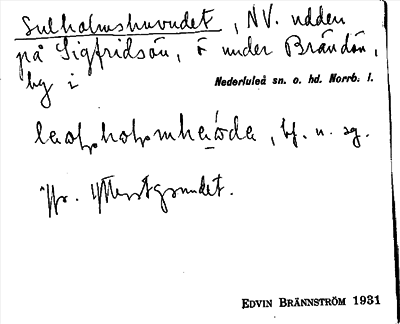 Sulholmshuvudet, NV. udden
på Sigfridsön, ö under Brändön,
by i
Nederluleå sn. o. hd. Norrb. l.
bf. n. sg.
Jfr. Ytterstgrundet.
EDVIN BRÄNNSTRÖM 1931